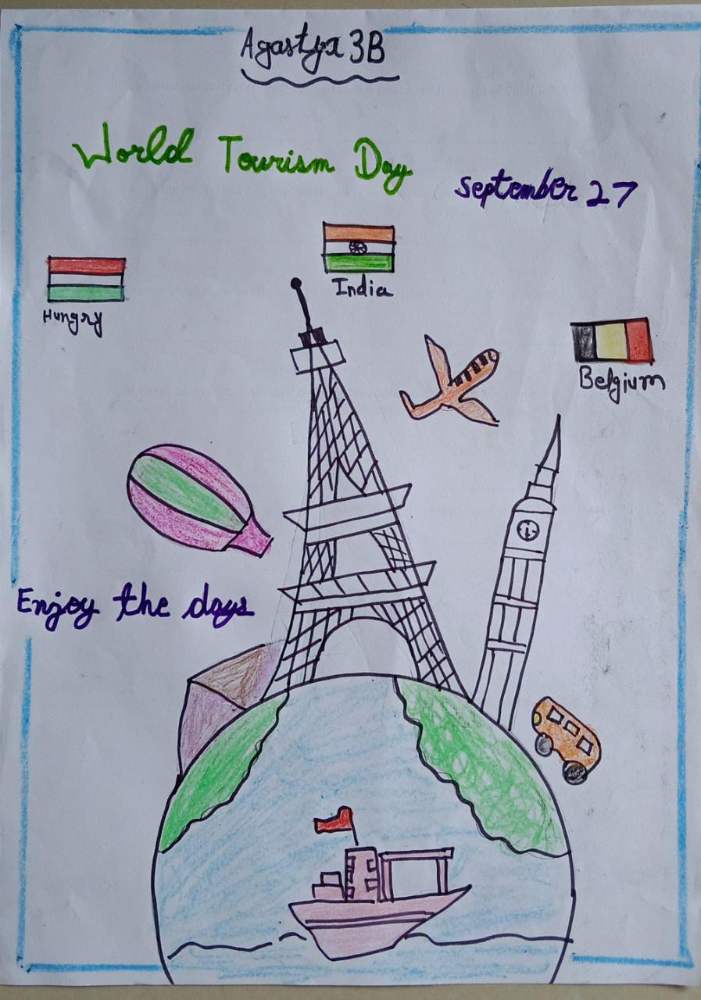 Agastya 3B
World Tourism Day
September 27
India
Hungry
Belgium
Enjoy the days